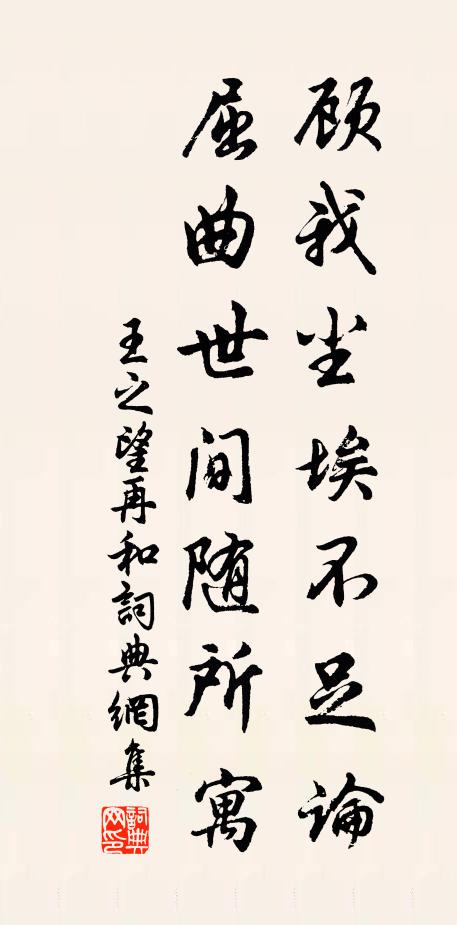 顾我尘埃不足論
屈曲世间随所寓
王之望再和詞典網集
詞典网印